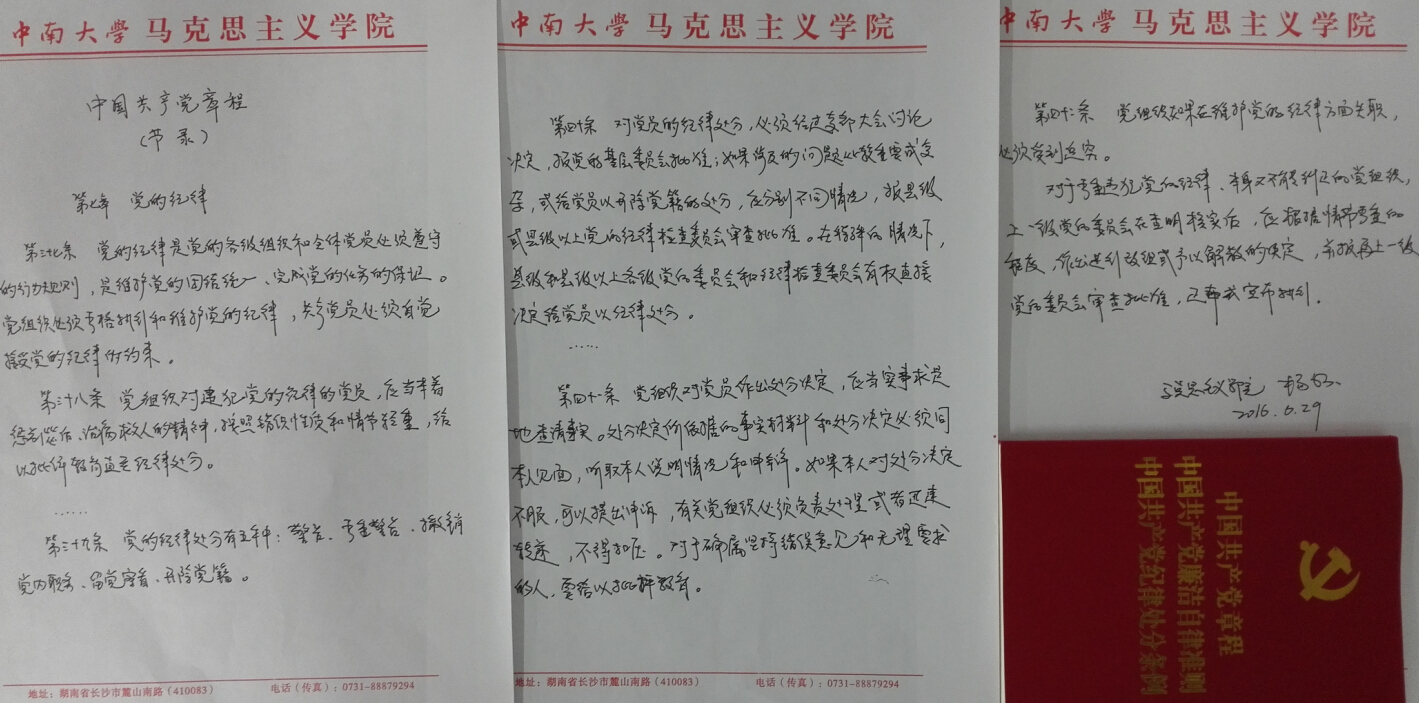 中南大学 马克思主义学院
中国共产党章程
(节录)
第七章 党的纪律
第三十七条 党的纪律是党的各级组织和全体党员必须遵守
的行为规则,是维护党的团结统一、完成党的任务的保证。
党组织必须严格执行和维护党的纪律,共产党员必须自觉
接受党的纪律的约束。
第三十八条 党组织对违犯党的纪律的党员,应当本着
惩前毖后、治病救人的精神,按照错误性质和情节轻重,给
以批评教育直至纪律处分。
……
第三十九条 党的纪律处分有五种:警告、严重警告、撤销
党内职务、留党察看、开除党籍。
地址:湖南省长沙市麓山南路(410083) 电话(传真):0731-88879294
中南大学 马克思主义学院
第四十条 对党员的纪律处分,必须经过支部大会讨论
决定,报党的基层委员会批准;如果涉及的问题比较重要或复
杂,或给党员以开除党籍的处分,应分别不同情况,报县级
或县级以上党的纪律检查委员会审查批准。在特殊的情况下,
县级和县级以上各级党的委员会和纪律检查委员会有权直接
决定给党员以纪律处分。
……
第四十一条 党组织对党员作出处分决定,应当实事求是
地查清事实。处分决定所依据的事实材料和处分决定必须同
本人见面,听取本人说明情况和申辩。如果本人对处分决定
不服,可以提出申诉,有关党组织必须负责处理或者迅速
转递,不得扣压。对于确属坚持错误意见和无理要求
的人,要给以批评教育。
地址:湖南省长沙市麓山南路(410083) 电话(传真):0731-88879294
中南大学 马克思主义学院
第四十二条 党组织如果在维护党的纪律方面失职,
必须受到追究。
对于严重违犯党的纪律、本身又不能纠正的党组织,
上一级党的委员会在查明核实后,应根据情节严重的
程度,作出进行改组或予以解散的决定,并报再上一级
党的委员会审查批准,正式宣布执行。
2016.6.29
中国共产党章程
中国共产党廉洁自律准则
中国共产党纪律处分条例